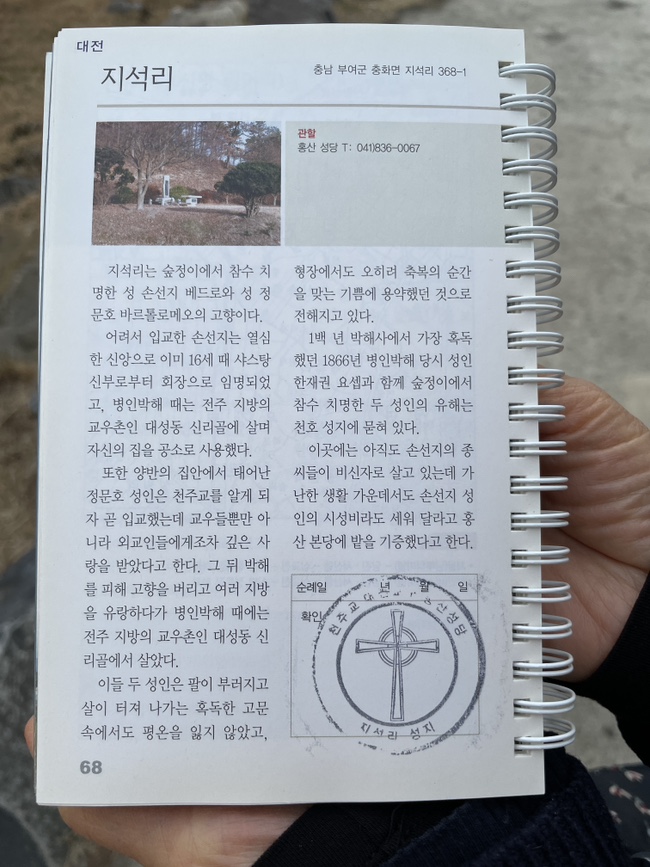 대전
지석리
충남 부여군 충화면 지석리 368-1
관할
홍산 성당 T: 041)836-0067
지석리는 숲정이에서 참수 치
명한 성 손선지 베드로와 성 정
문호 바르톨로메오의 고향이다.
어려서 입교한 손선지는 열심
한 신앙으로 이미 16세 때 샤스탕
신부로부터 회장으로 임명되었
고, 병인박해 때는 전주 지방의
교우촌인 대성동 신리골에 살며
자신의 집을 공소로 사용했다.
또한 양반의 집안에서 태어난
정문호 성인은 천주교를 알게 되
자 곧 입교했는데 교우들뿐만 아
니라 외교인들에게조차 깊은 사
랑을 받았다고 한다. 그 뒤 박해
를 피해 고향을 버리고 여러 지방
을 유랑하다가 병인박해 때에는
전주 지방의 교우촌인 대성동 신
리골에서 살았다.
이들 두 성인은 팔이 부러지고
살이 터져 나가는 혹독한 고문
속에서도 평온을 잃지 않았고,
형장에서도 오히려 축복의 순간
을 맞는 기쁨에 용약했던 것으로
전해지고 있다.
1백 년 박해사에서 가장 혹독
했던 1866년 병인박해 당시 성인
한재권 요셉과 함께 숲정이에서
참수 치명한 두 성인의 유해는
천호 성지에 묻혀 있다.
이곳에는 아직도 손선지의 종
씨들이 비신자로 살고 있는데 가
난한 생활 가운데서도 손선지 성
인의 시성비라도 세워 달라고 홍
산 본당에 밭을 기증했다고 한다.
순례일 년 월 일
확인
천주교 홍산성당
지석리 성지
68